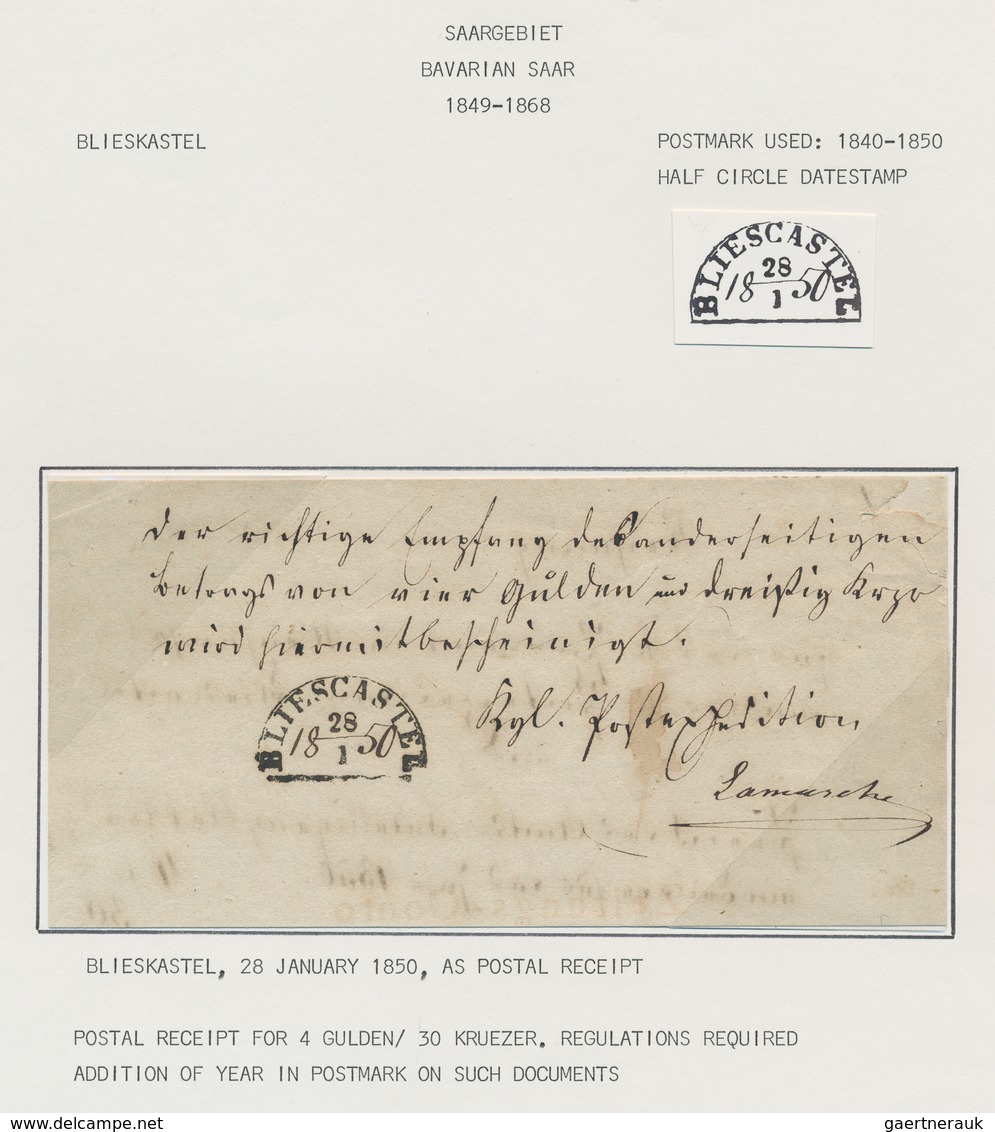 SAARGEBIET
BAVARIAN SAAR
1849-1868
BLIESKASTEL
POSTMARK USED: 1840-1850
HALF CIRCLE DATESTAMP
BLIESCASTEL
28
18 50
1
Der richtige Empfang des anderseitigen
Betrags von vier Gulden und dreißig Krzr
wird hiermit bescheinigt.
BLIESCASTEL
28
18 50
1
Kgl. Postexpedition
Lamarche
BLIESKASTEL, 28 JANUARY 1850, AS POSTAL RECEIPT
POSTAL RECEIPT FOR 4 GULDEN/ 30 KRUEZER. REGULATIONS REQUIRED
ADDITION OF YEAR IN POSTMARK ON SUCH DOCUMENTS
www.stamp-auctions.de
gaertnerauk